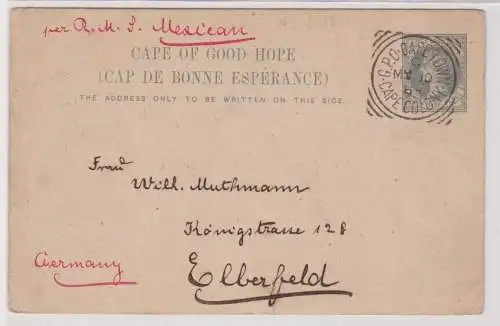 per R. M. S. Mexican
CAPE OF GOOD HOPE
(CAP DE BONNE ESPÉRANCE)
THE ADDRESS ONLY TO BE WRITTEN ON THIS SIDE.
G.P.O. CAPE TOWN
MY 10
CAPE COLONY
Frau
Wilh. Muthmann
Königstrasse 128
Germany
Elberfeld